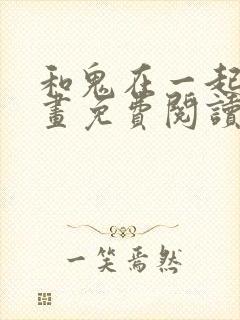 和鬼在一起
畫免費閱讀
一笑焉然